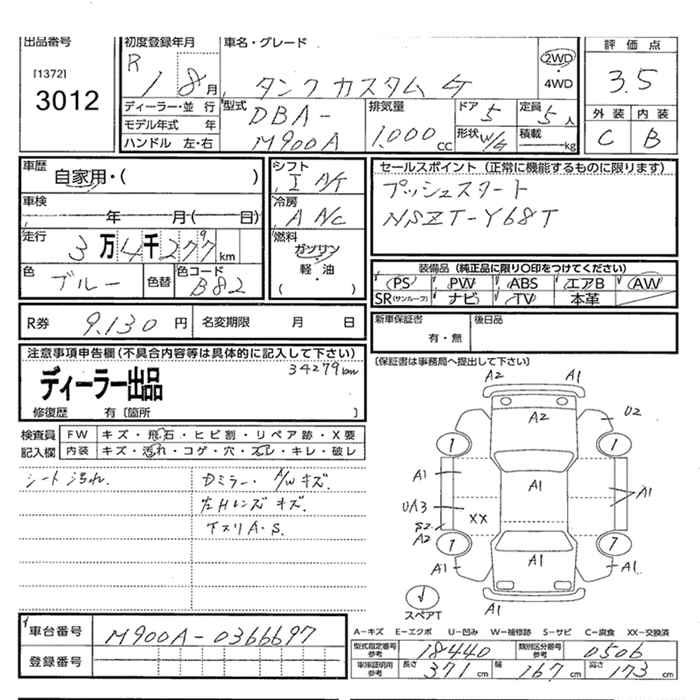 出品番号
[1372]
3012
初度登録年月
R 1 8月
車名・グレード
タンク カスタム G
2WD
・
4WD
評価点
3.5
外装 内装
C B
ディーラー・並行
モデル年式 年
ハンドル 左・右
型式
DBA-
M900A
排気量
1,000 cc
ドア 5
形状 W/G
定員 5人
積載 kg
車歴
自家用・( )
車検
年 月( 日)
走行
3万4千279km
色 ブルー
色替
色コード B82
シフト
I A/T
冷房
A A/C
燃料
ガソリン
・
軽・油
( )
セールスポイント (正常に機能するものに限ります)
プッシュスタート
NSZT-Y68T
装備品 (純正品に限り○印をつけてください)
PS PW ABS エアB AW
SR(サンルーフ) ナビ TV 本革
R券 9,130 円
名変期限 月 日
新車保証書
有・無
後日品
(保証書は事務局へ提出して下さい)
注意事項申告欄(不具合内容等は具体的に記入して下さい)
34279km
ディーラー出品
修復歴 有〔箇所 〕
検査員
記入欄
FW キズ・飛石・ヒビ割・リペア跡・X要
内装 キズ・汚れ・コゲ・穴・スレ・キレ・破レ
シート汚れ.
Dミラー・A/Wキズ.
左Hレンズキズ.
下スリA・S.
A2 A1
A2 U2
1 1
A1 A1 A1
UA3 XX
S2
A2
1 7
A1 A1 A1
スペアT
A1
車台番号 M900A-0366697
登録番号
A-キズ E-エクボ U-凹み W-補修跡 S-サビ C-腐食 XX-交換済
型式指定番号 参考 18440
類別区分番号 参考 0506
車庫証明用 参考
長さ 371cm 幅 167cm 高さ 173cm